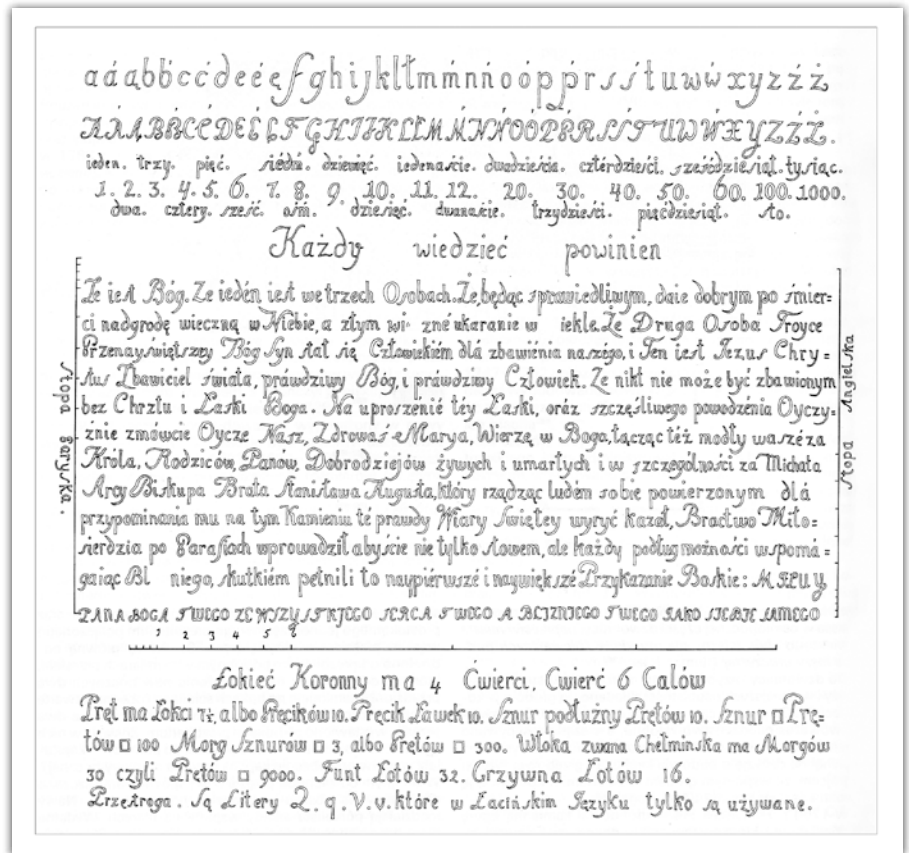 a á ą b b́ c ć d e é ę f g h i j k l ł m ḿ n ń o ó p ṕ r s ś t u w ẃ x y z ź ż
A Á Ą B B́ C Ć D E É Ę F G H I J K L Ł M Ḿ N Ń O Ó P Ṕ R S Ś T U W Ẃ X Y Z Ź Ż.
ieden. trzy. pięć. siédm. dziewięć. iedenaście. dwadzieścia. cztérdzieści. sześćdziesiąt. tysiąc.
1. 2. 3. 4. 5. 6. 7. 8. 9. 10. 11. 12. 20. 30. 40. 50. 60. 100. 1000.
dwa. cztery. sześć. ośm. dziesięć. dwanaście. trzydzieści. pięćdziesiąt. sto.
Każdy wiedzieć powinien
Że iest Bóg. Że iedén iest we trzech Osobach. Że, będąc sprawiedliwym, daie dobrym po śmier=
ci nadgrodę wieczną w Niebie, a złym wi zné ukaranie w iekle. Że Druga Osoba Troyce
Przenayświętszey Bóg Syn stał się Człowiekiém dlá zbawiénia naszégo, i Ten iest Jezus Chry=
stus Zbawiciel świata, práwdziwy Bóg, i práwdziwy Człowiek. Że nikt nie może być zbawionym
bez Chrztu i Łaski Boga. Na uproszenié téy Łaski, oráz szczęśliwego powodzénia Oyczy=
znie zmówcie Oycze Nasz, Zdrowaś Marya, Wierzę w Boga, łącząc też modły waszé za
Króla, Rodziców, Panów, Dobrodziejów żywych i umarłych i w szczególności za Michała
Arcy Biskupa Brata Stanisława Augusta, który rządząc ludém sobie powierzonym dlá
przypominania mu na tym Kamieniu té prawdy Wiary Świętey wyryć kazał, Bractwo Miło=
sierdzia po Parafiach wprowadził abyście nie tylko słowem, ale każdy podług możności wspomá=
gaiąc Bl niego, skutkiém pełnili to naypiérwszé i naywiększé Przykazanie Boskie: MIŁUY
PANA BOGA TWEGO ZE WSZYSTKIEGO SERCA TWEGO A BLIZNIEGO TWEGO JAKO SIEBIE SAMEGO
Stopa Paryska.
Stopa Angielska
1 2 3 4 5 6
Łokieć Koronny ma 4 Ćwierci, Ćwierć 6 Calów
Pręt ma Łokci 7½, albo Pręcików 10. Pręcik Ławek 10. Sznur podłużny Prętów 10. Sznur □ Prę=
tów □ 100 Morg Sznurów □ 3, albo Prętów □ 300. Włoka zwana Chełmińska ma Morgów
30 czyli Prętów □ 9000. Funt Łotów 32. Grzywna Łotów 16.
Przestroga. Są Litery Q. q. V. v. które w Łacińskim Języku tylko są używane.